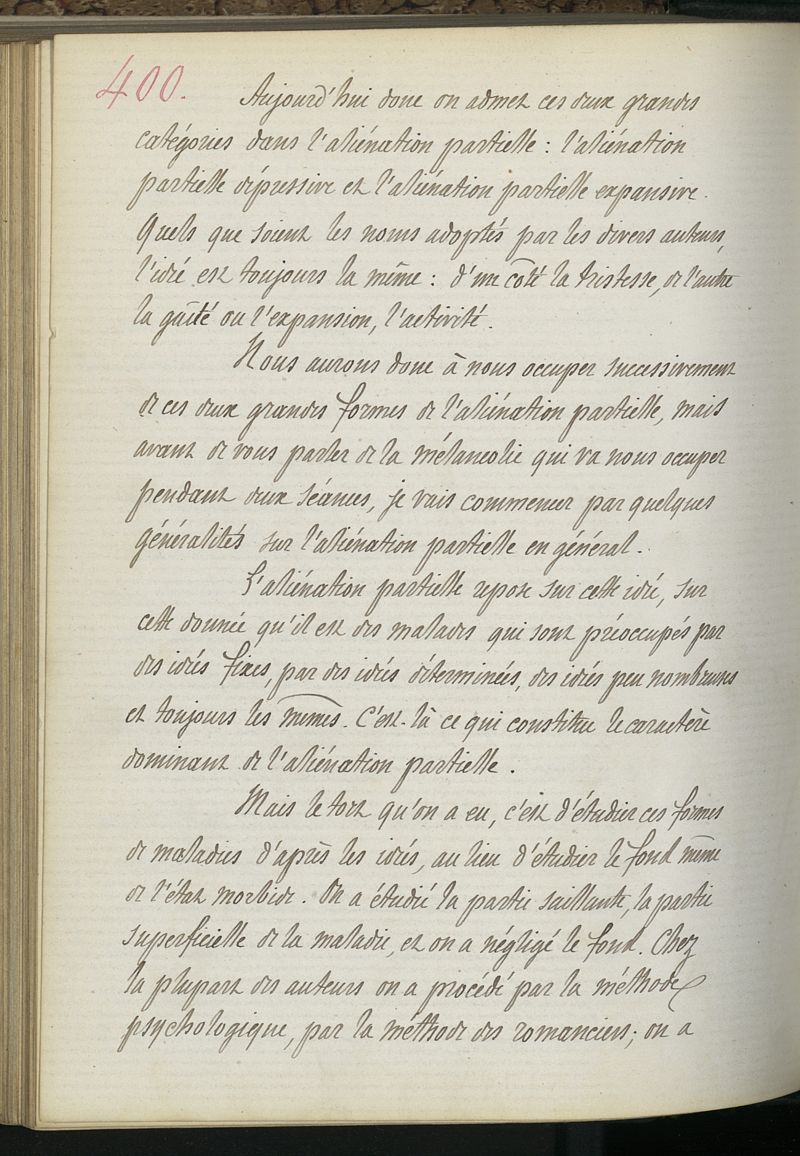 400.
Aujourd'hui donc on admet ces deux grandes
catégories dans l'aliénation partielle : l'aliénation
partielle dépressive et l'aliénation partielle expansive.
Quels que soient les noms adoptés par les divers auteurs,
l'idée est toujours la même : d'un côté la tristesse, de l'autre
la gaîté ou l'expansion, l'activité.
Nous aurons donc à nous occuper successivement
de ces deux grandes formes de l'aliénation partielle, mais
avant de vous parler de la mélancolie qui va nous occuper
pendant deux séances, je vais commencer par quelques
généralités sur l'aliénation partielle en général.
L'aliénation partielle repose sur cette idée, sur
cette donnée qu'il est des malades qui sont préoccupés par
des idées fixes, par des idées déterminées, des idées peu nombreuses
et toujours les mêmes. C'est-là ce qui constitue le caractère
dominant de l'aliénation partielle.
Mais le tort qu'on a eu, c'est d'étudier ces formes
de maladies d'après les idées, au lieu d'étudier le fond même
de l'état morbide. On a étudié la partie saillante, la partie
superficielle de la maladie, et on a négligé le fond. Chez
la plupart des auteurs on a procédé par la méthode
psychologique, par la méthode des romanciers ; on a